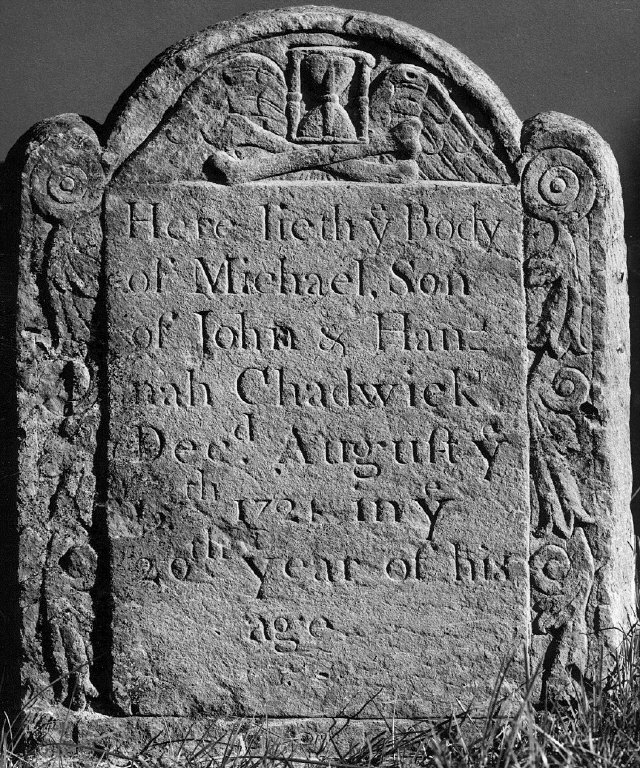 Here lieth yͤ Body
of Michael, Son
of John & Han⹀
nah Chadwick
Decᵈ. Auguſt yͤ
ᵗʰ 1721 in yͤ
20ᵗʰ year of his
age